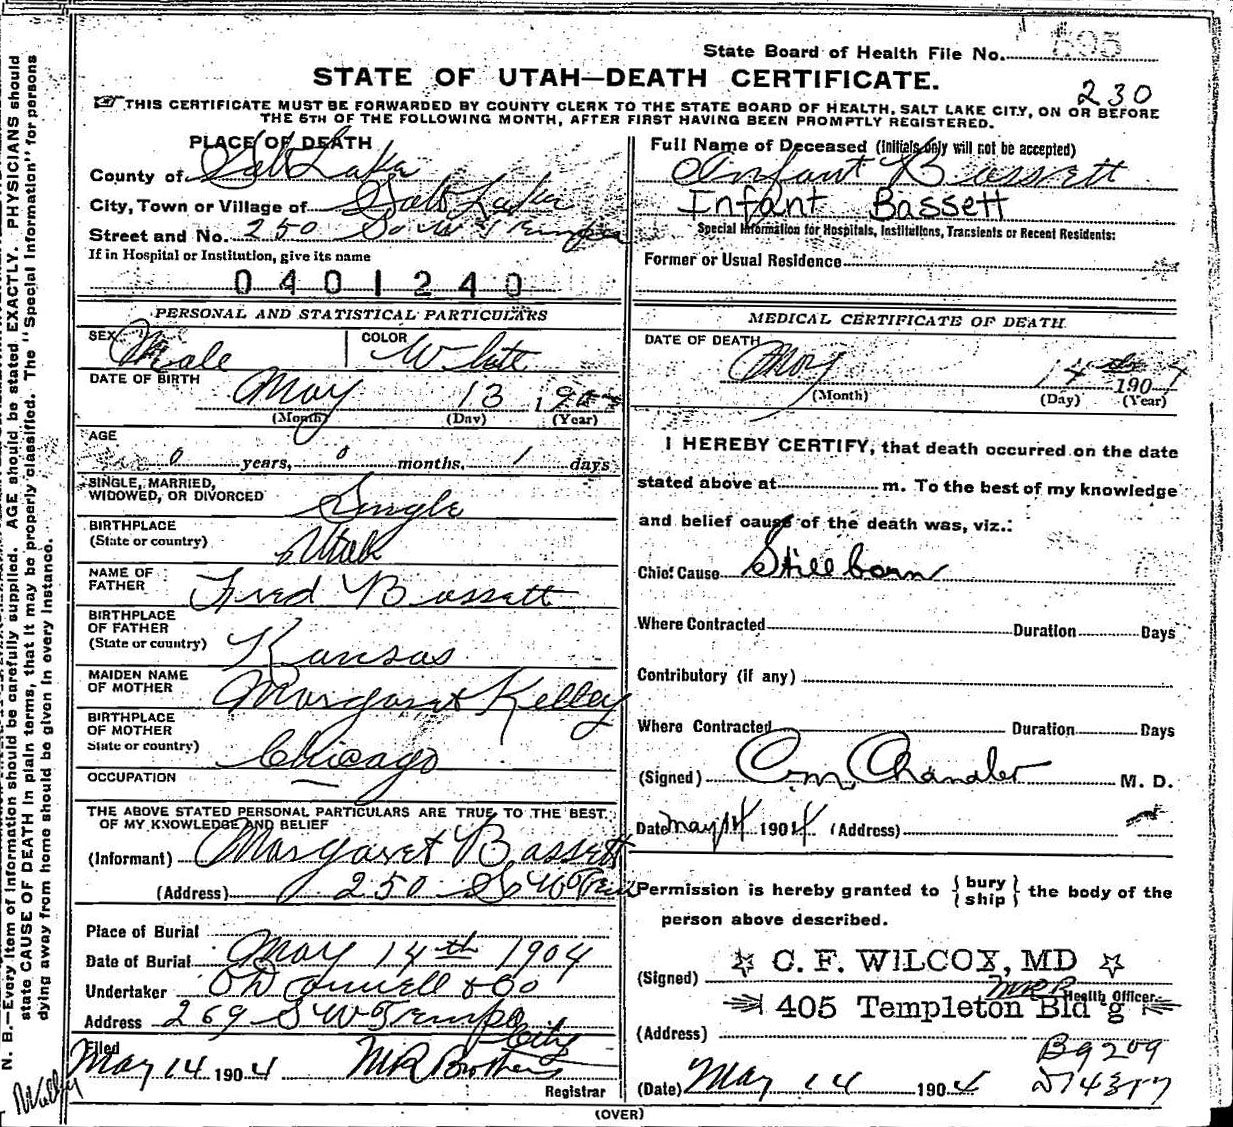 State Board of Health File No. 595
STATE OF UTAH—DEATH CERTIFICATE.
230
THIS CERTIFICATE MUST BE FORWARDED BY COUNTY CLERK TO THE STATE BOARD OF HEALTH, SALT LAKE CITY, ON OR BEFORE
THE 5TH OF THE FOLLOWING MONTH, AFTER FIRST HAVING BEEN PROMPTLY REGISTERED.
PLACE OF DEATH
County of Salt Lake
City, Town or Village of Salt Lake
Street and No. 250 So W Temple
If in Hospital or Institution, give its name
0401240
Full Name of Deceased (Initials only will not be accepted)
Infant Bassett
Infant Bassett
Special Information for Hospitals, Institutions, Transients or Recent Residents:
Former or Usual Residence
PERSONAL AND STATISTICAL PARTICULARS
SEX Male COLOR White
DATE OF BIRTH May 13 1904
(Month) (Day) (Year)
AGE
0 years, 0 months, 1 days
SINGLE, MARRIED,
WIDOWED, OR DIVORCED Single
BIRTHPLACE
(State or country) Utah
NAME OF
FATHER Fred Bassett
BIRTHPLACE
OF FATHER
(State or country) Kansas
MAIDEN NAME
OF MOTHER Margaret Kelley
BIRTHPLACE
OF MOTHER
State or country) Chicago
OCCUPATION —
THE ABOVE STATED PERSONAL PARTICULARS ARE TRUE TO THE BEST
OF MY KNOWLEDGE AND BELIEF
(Informant) Margaret Bassett
(Address) 250 So W Temp
Place of Burial
Date of Burial May 14th 1904
Undertaker O'Donnell & Co
Address 269 S W Temple
City
Filed
May 14 1904 MR Brothers
Registrar
MEDICAL CERTIFICATE OF DEATH
DATE OF DEATH
May 14th 1904
(Month) (Day) (Year)
I HEREBY CERTIFY, that death occurred on the date
stated above at m. To the best of my knowledge
and belief cause of the death was, viz.:
Chief Cause Stillborn
Where Contracted Duration Days
Contributory (if any)
Where Contracted Duration Days
(Signed) C.M. Chandler M. D.
Date May 14 1904 (Address)
Permission is hereby granted to {bury
ship} the body of the
person above described.
(Signed) C. F. WILCOX, MD
MRB Health Officer
405 Templeton Bld'g
(Address)
(Date) May 14 1904
(OVER)
N. B.—Every item of information should be carefully supplied. AGE should be stated EXACTLY. PHYSICIANS should
state CAUSE OF DEATH in plain terms, that it may be properly classified. The "Special Information" for persons
dying away from home should be given in every instance.